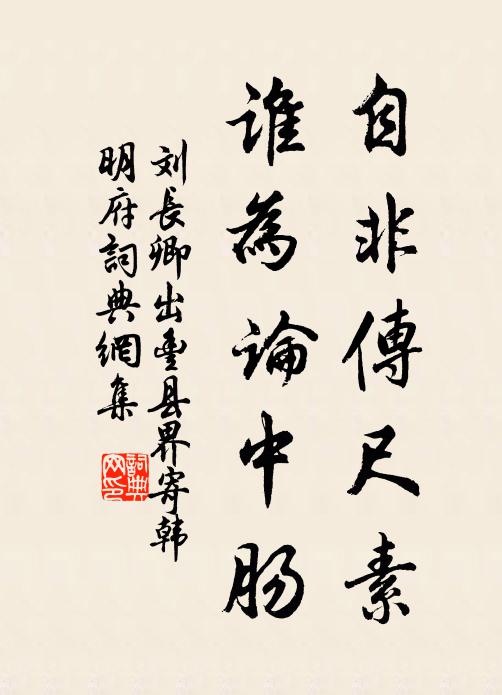 自非傳尺素
誰為論中腸
刘長卿出豊县界寄韩
明府詞典網集
詞典
网印